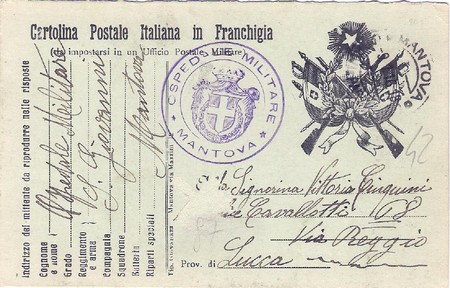 Cartolina Postale Italiana in Franchigia
(da impostarsi in un Ufficio Postale Militare)
OSPEDALE MILITARE
MANTOVA
MANTOVA
Indirizzo del mittente da riprodurre nelle risposte
Cognome e nome
Grado
Reggimento e arma
Compagnia
Squadrone
Batteria
Riparti speciali
Ospedale Militare
S. Giovanni
Mantova
42
Signorina Vittoria
Cavallotti 68
Via Reggio
Prov. di Lucca
87